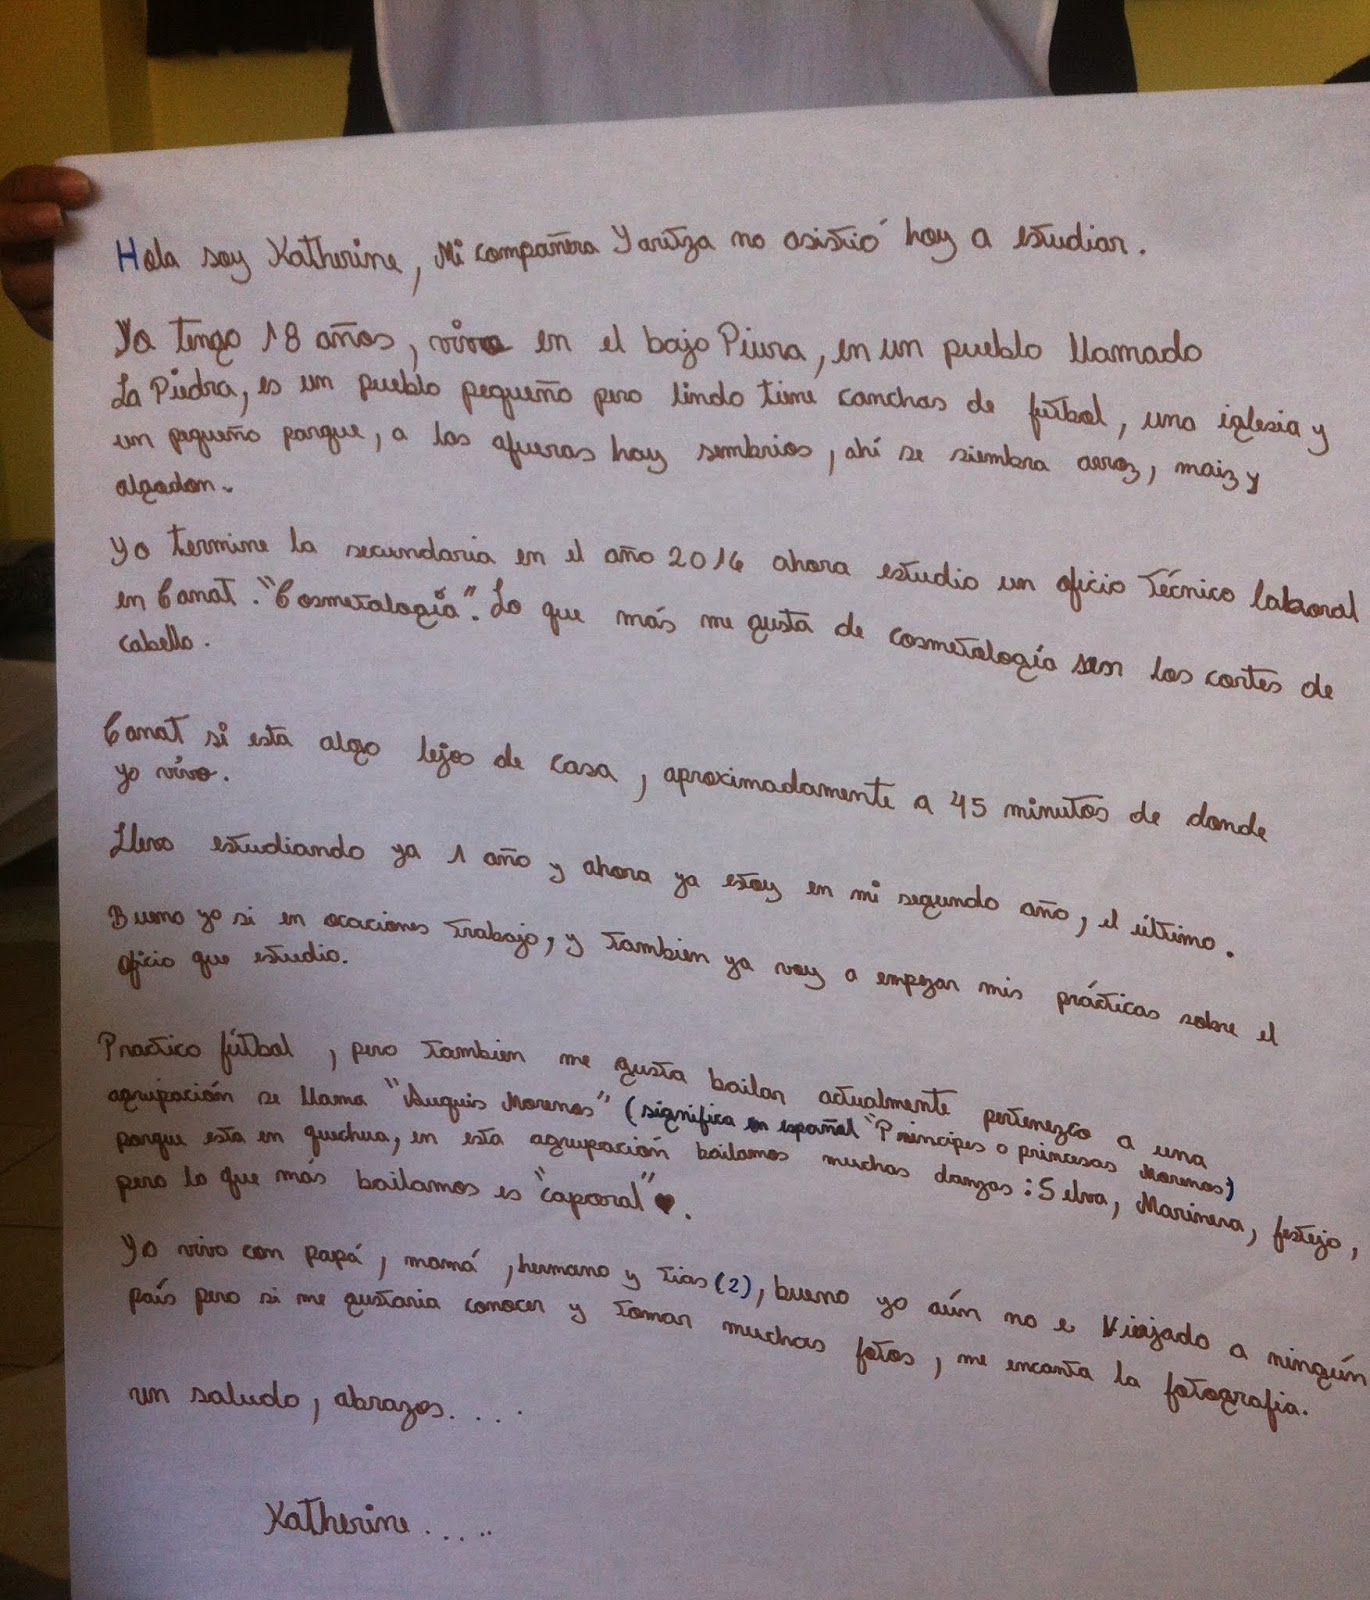 Hola soy Katherine, Mi compañera Yaritza no asistió hoy a estudiar.
Yo tengo 18 años, vivo en el bajo Piura, en un pueblo llamado
La Piedra, es un pueblo pequeño pero lindo tiene canchas de fútbol, una iglesia y
un pequeño parque, a las afueras hay sembrios, ahí se siembra arroz, maiz y
algodon.
Yo termine la secundaria en el año 2016 ahora estudio un oficio Técnico laboral
en Canat. "Cosmetología". Lo que más me gusta de cosmetología son los cortes de
cabello.
Canat si está algo lejos de casa, aproximadamente a 45 minutos de donde
yo vivo.
Llevo estudiando ya 1 año y ahora ya estoy en mi segundo año, el último.
Bueno yo si en ocaciones trabajo, y tambien ya voy a empezar mis prácticas sobre el
oficio que estudio.
Practico fútbol, pero tambien me gusta bailar actualmente pertenezco a una
agrupación se llama "Auquis Morenos" (significa en español "Principes o princesas Morenos)
porque esta en quechua, en esta agrupación bailamos muchas danzas: Selva, Marinera, festejo,
pero lo que más bailamos es "caporal" ♥.
Yo vivo con papá, mamá, hermano y tias (2), bueno yo aún no e viajado a ningún
país pero si me gustaria conocer y tomar muchas fotos, me encanta la fotografia.
un saludo, abrazos. . . .
Katherine . . . . .